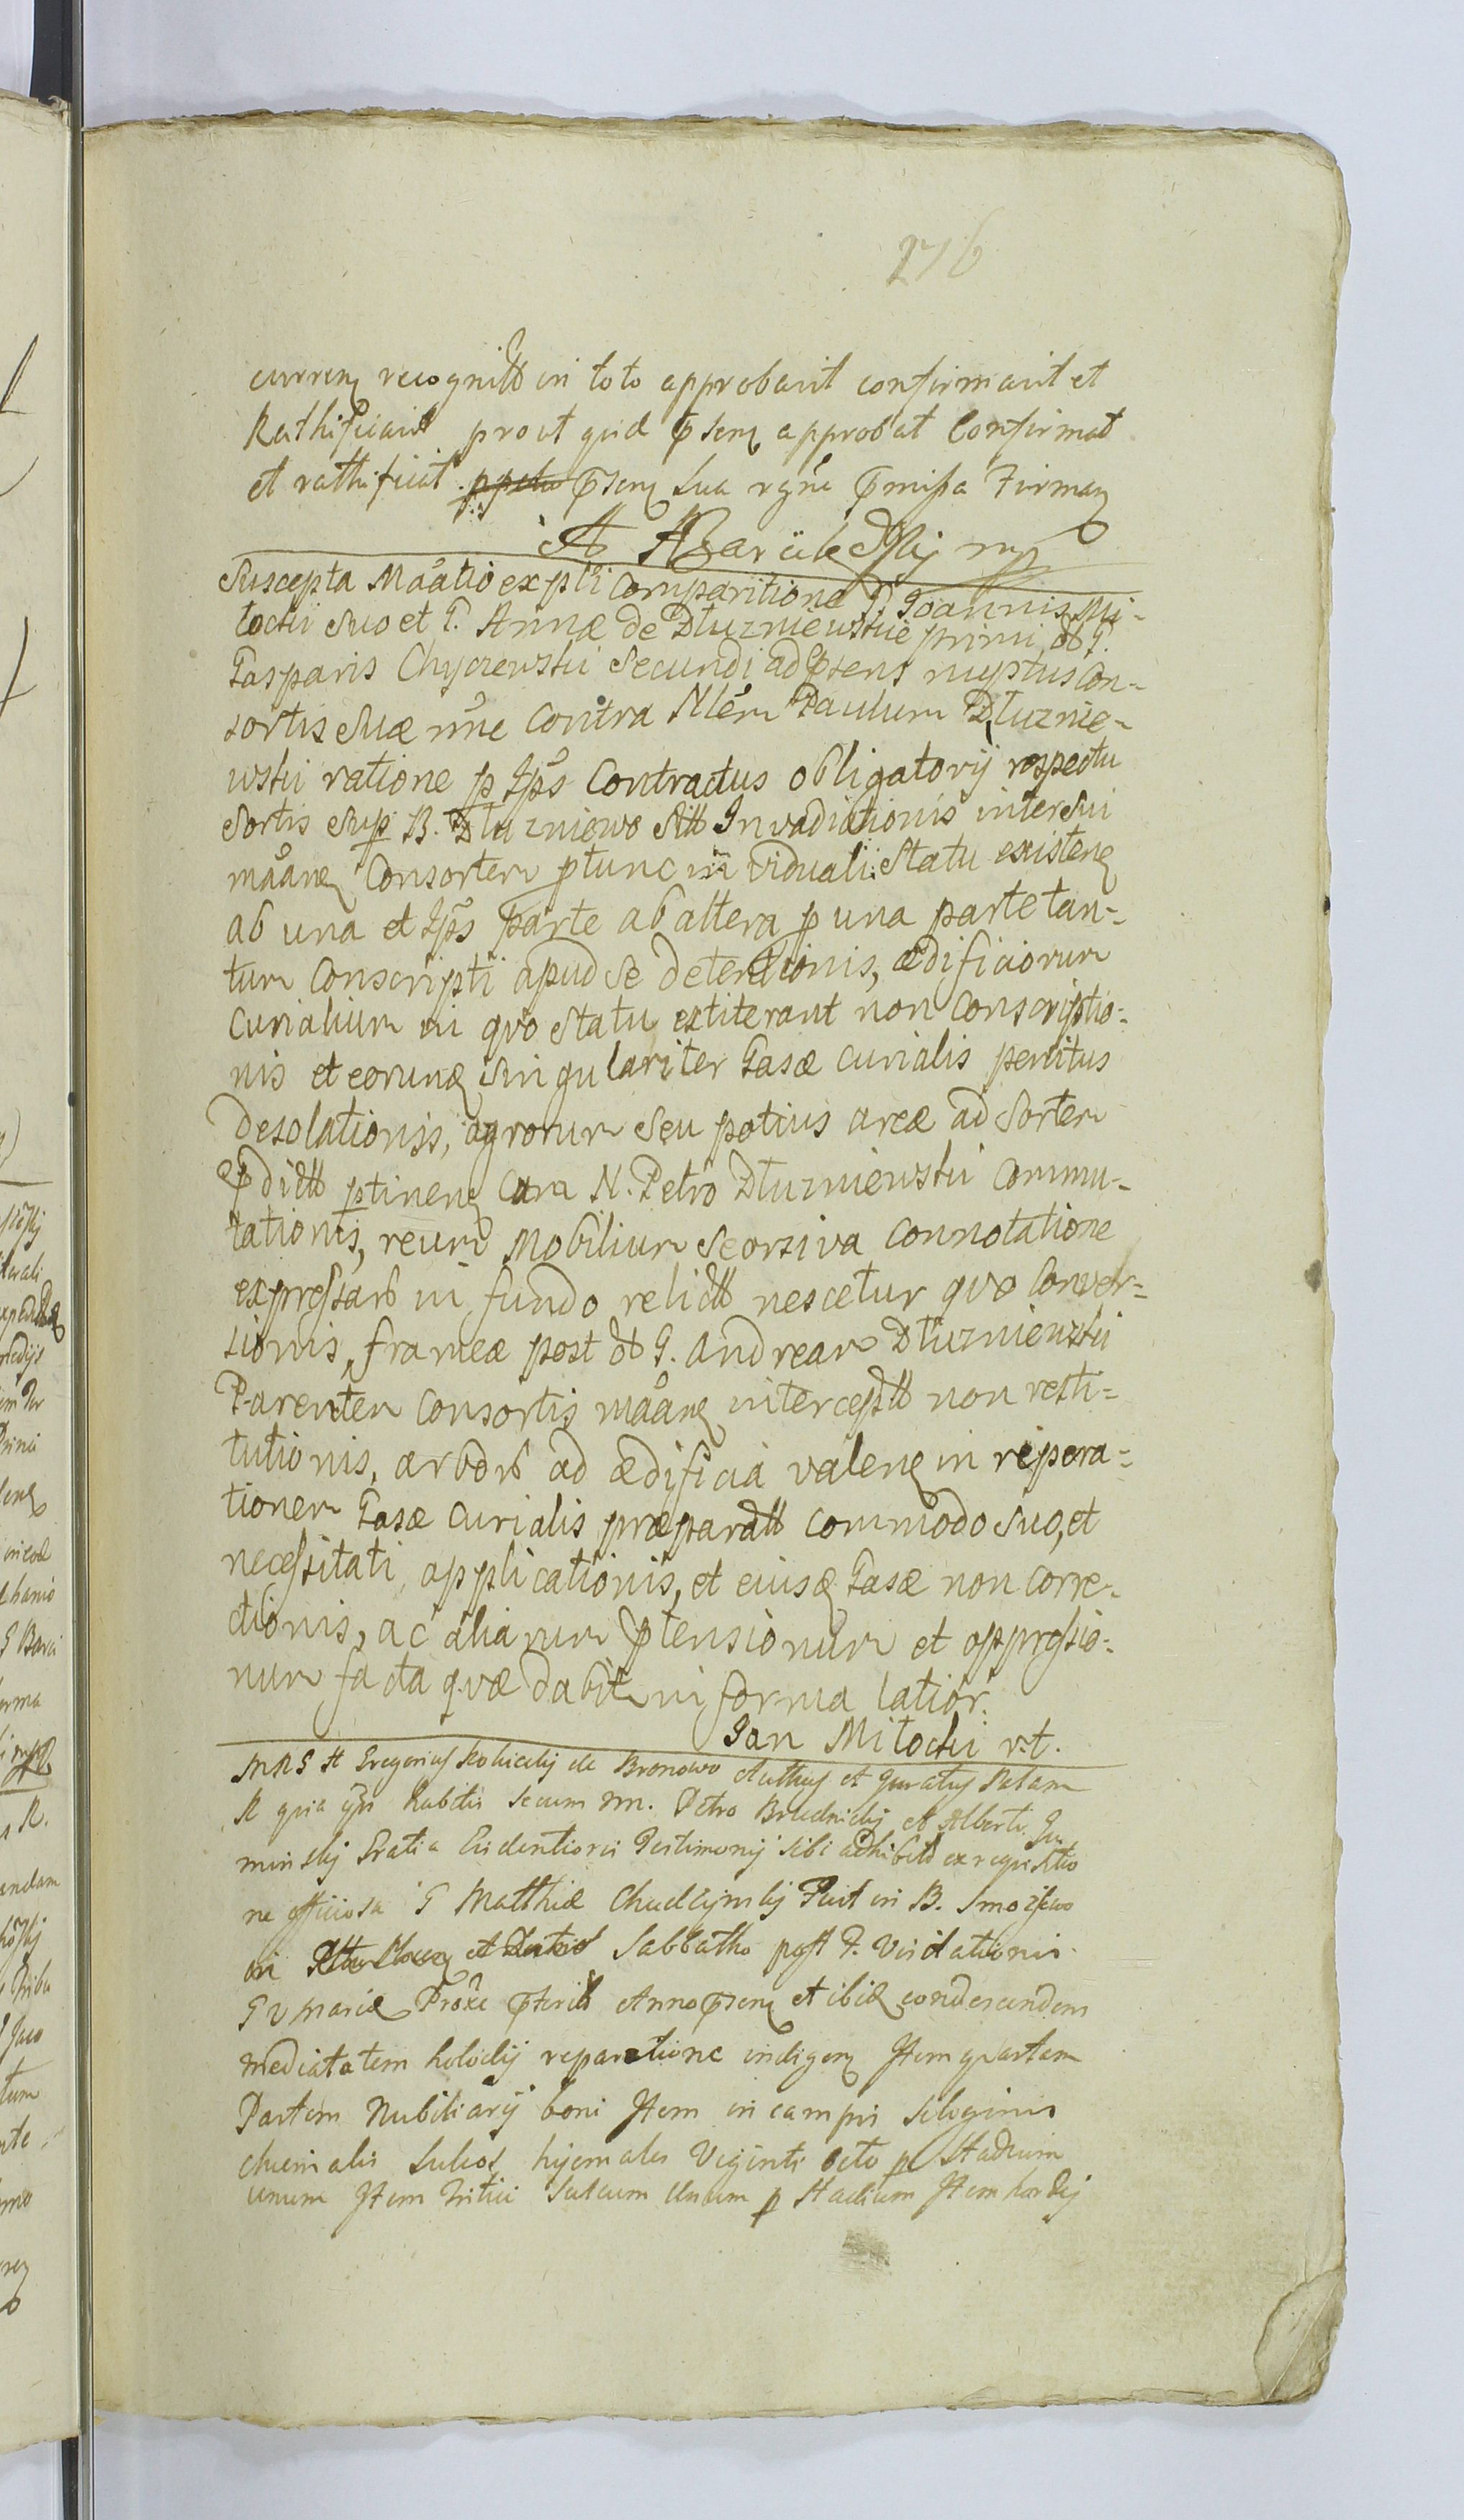 276
currenꝫ recognitt in toto approbavit confirmavit et
Rathificavit prout quid p̄senꝫ approbat Confirmat
et rathificat p̄senꝫ sua rgñe p̄missa Firmanꝫ
Suscepta Maãtio ex pti Comparitione G. Joannis Mi-
lochii suo et G. Annæ de Dłuzniewskie primi olt G.
Gasparis Chyczewski Secundi ad p̄sens nuptus Con-
sortis suæ nñe Contra Nlem Paulum Dłuznie-
wski ratione p Ips̃ Contractus obligatorij respectu
Sortis sup B. Dłuzniewo sitt Invadiationis inter sui
maãnꝫ Consortem ptunc in viduali statu existenꝫ
ab una et Ips̃ parte ab altera p una parte tan-
tum Conscripti apud se detentionis, ædificiorum
Curialium in quo statu extiterant non Conscriptio-
nis et eorunꝫ singulariter Casæ Curialis penitus
desolationis, agrorum seu potius areæ ad Sortem
p̄ditt ptinenꝫ Cum N. Petro Dłuzniewski Commu-
tationis, rerum Mobilium Seorsiva Connotatione
expressarῦ in fundo relictt nescetur quo Conver-
sionis, frameæ post olt G. Andream Dłuzniewski
Parentem Consortis maãnꝫ interceptt non resti-
tutionis, arborῦ ad ædificia valenꝫ in repera-
tionem Casæ Curialis præparatt commodo suo, et
necessitati applicationis, et eiusꝫ Casæ non Corre-
ctionis, ac aliarum p̄tensionum et oppressio-
num facta quæ dabitur in forma latior.
Jan Milochi v.t.
MRG H Gregorius de Bronowo et Juratus Palam
R quia ip̃i habitis secum nn. Petro Bludnicky et Alberto Gu
minsky Gratia Evidentioris Testimonij sibi adhibitt ex requisitio
ne officiosa G Matthiæ Chudzynsky Fuit in B. Smozewo
in Sabbatho post F. Visitationis
G V Mariæ Proxe p̄terit Anno p̄senꝫ et ibiꝫ condescendens
mediatatem holodij reparatione indigenꝫ Item quartam
Partem Nubiliarij boni Item in campis siliginis
chiemalis Sulcos hyemales Viginti octo p Stadium
unum Item Tritici Sulcum Unum p Stadium Item hordej